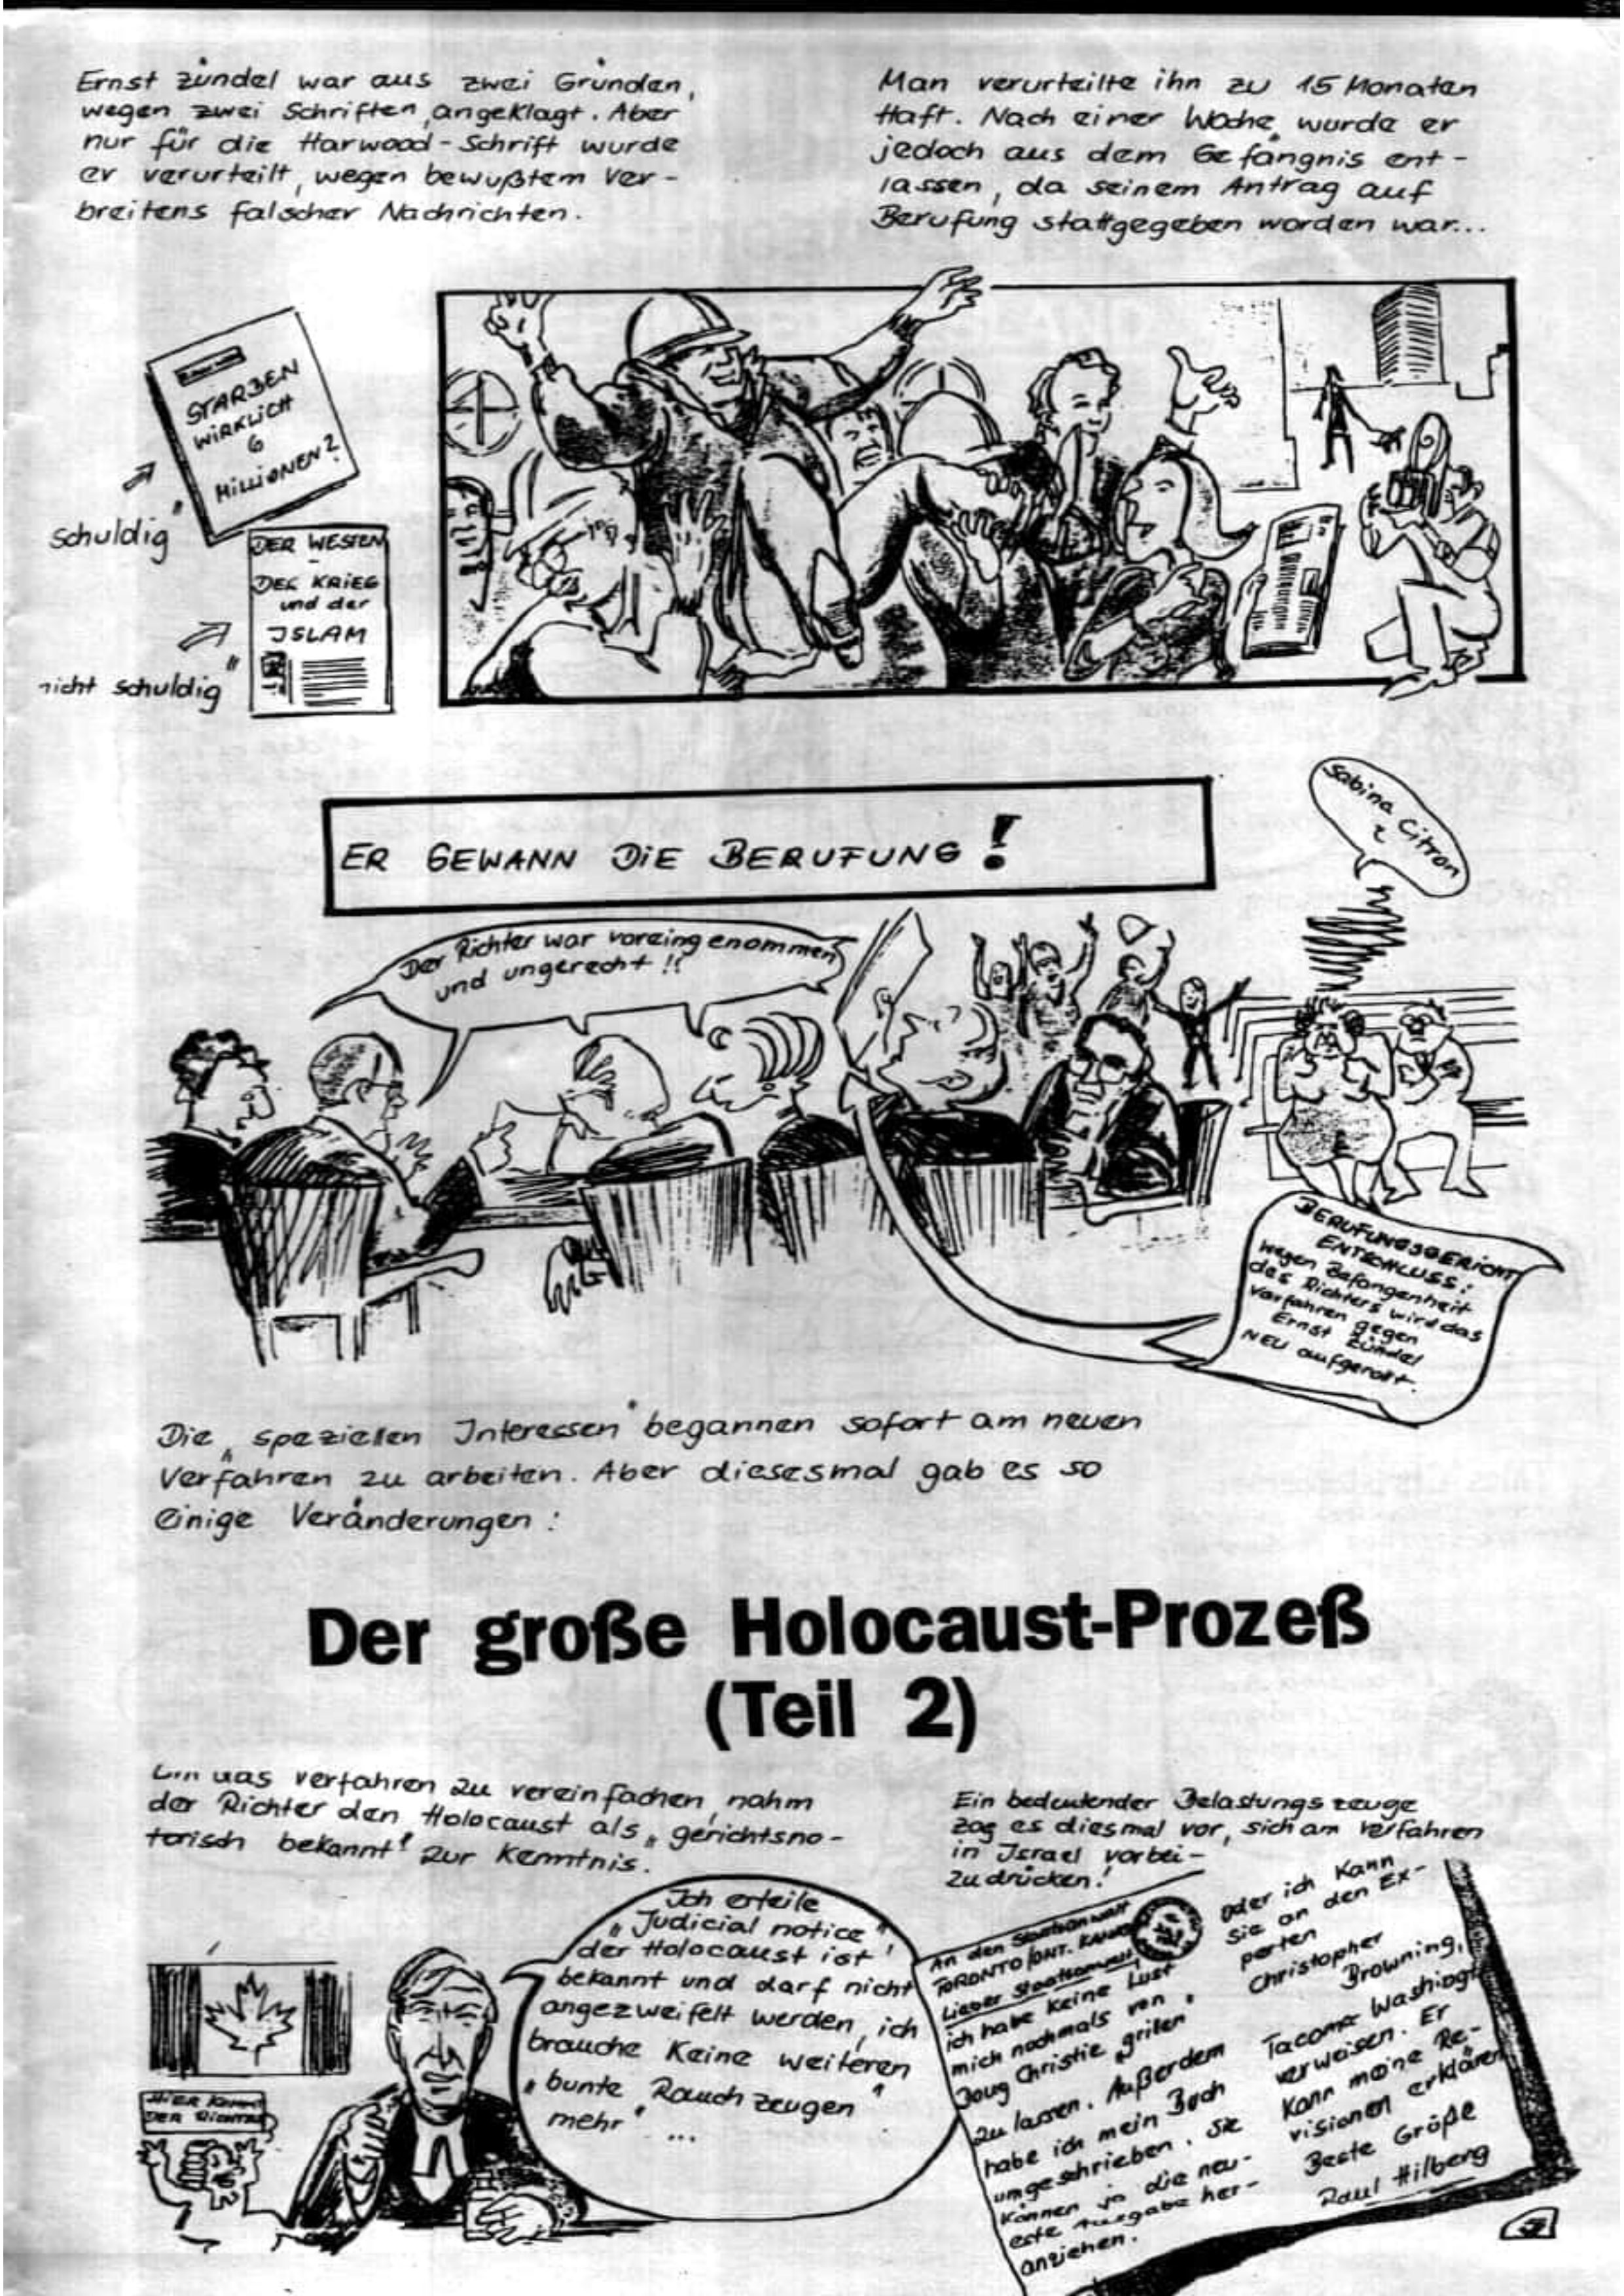 Ernst Zündel war aus zwei Gründen,
wegen zwei Schriften, angeklagt. Aber
nur für die Harwood-Schrift wurde
er verurteilt, wegen bewußtem Ver-
breitens falscher Nachrichten.
Man verurteilte ihn zu 15 Monaten
Haft. Nach einer Woche wurde er
jedoch aus dem Gefängnis ent-
lassen, da seinem Antrag auf
Berufung stattgegeben worden war...
STARBEN
WIRKLICH
6
MILLIONEN?
schuldig"
DER WESTEN
-
DER KRIEG
und der
ISLAM
nicht schuldig"
ER GEWANN DIE BERUFUNG!
Sabina Citron
Der Richter war voreingenommen
und ungerecht!!
BERUFUNGSGERICHT
ENTSCHLUSS:
wegen Befangenheit
des Richters wird das
Verfahren gegen
Ernst Zündel
NEU aufgerollt.
Die „speziellen Interessen" begannen sofort am neuen
Verfahren zu arbeiten. Aber diesesmal gab es so
einige Veränderungen:
Der große Holocaust-Prozeß
(Teil 2)
Um das Verfahren zu vereinfachen, nahm
der Richter den Holocaust als „gerichtsno-
torisch bekannt" zur Kenntnis.
Ich erteile
„Judicial notice"
der Holocaust ist
bekannt und darf nicht
angezweifelt werden, ich
brauche keine weiteren
„bunte Rauchzeugen"
mehr" ...
HIER KOMMT
DER RICHTER
Ein bedeutender Belastungszeuge
zog es diesmal vor, sich am Verfahren
in Israel vorbei-
zudrücken!
An den Staatsanwalt
TORONTO/ONT. KANADA
Lieber Staatsanwalt
ich habe keine Lust
mich nochmals von
Doug Christie „grillen"
zu lassen. Außerdem
habe ich mein Buch
umgeschrieben. Sie
können ja die neu-
este Ausgabe her-
anziehen.
Oder ich kann
Sie an den Ex-
perten
Christopher
Browning,
Tacoma Washingt
verweisen. Er
kann meine Re-
visionen erklären
Beste Grüße
Raul Hilberg